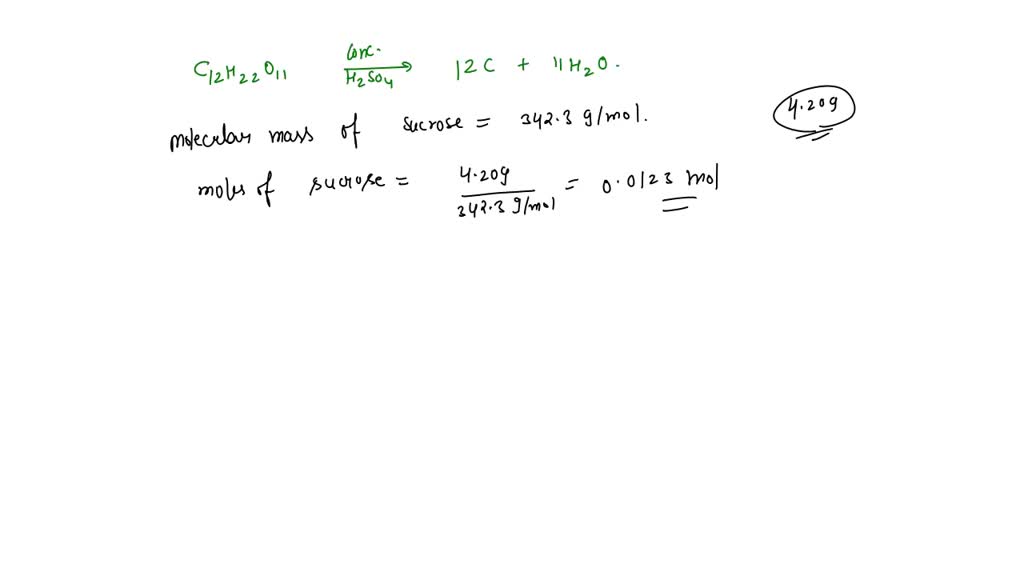 C12H22O11 conc. H2SO4 → 12C + 11H2O.
molecular mass of sucrose = 342.3 g/mol.
4.20g
moles of sucrose = 4.20g / 342.3 g/mol = 0.0123 mol